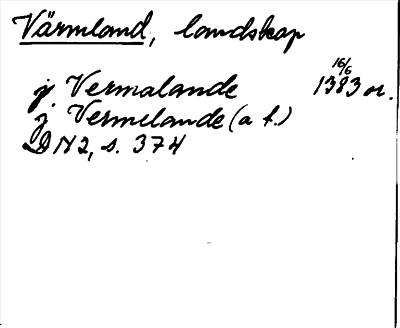 Värmland, landskap
j. Vermalande 16/6 1383 or.
j Vermelande (a f.)
DN 2, s. 374